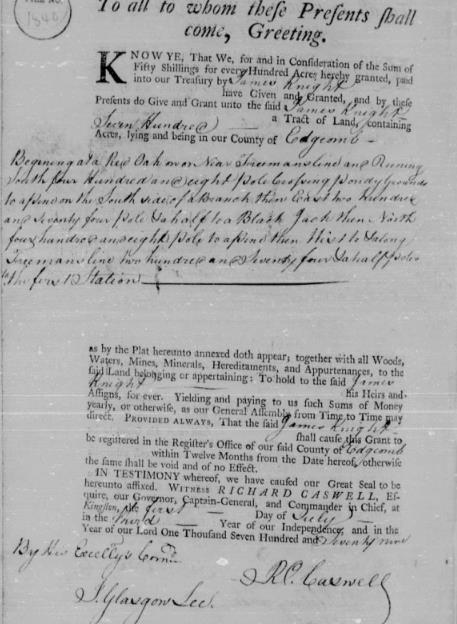 1840
To all to whom these Presents shall
come, Greeting.
KNOW YE, That We, for and in Consideration of the Sum of
Fifty Shillings for every Hundred Acres hereby granted, paid
into our Treasury by James Knight
have Given and Granted, and by these
Presents do Give and Grant unto the said James Knight
a Tract of Land, containing
Seven Hundred
Acres, lying and being in our County of Edgcomb
Begining at a Red Oak on or Near Freemans line and Runing
South four Hundred and eight pole Crossing pondy Grounds
to a pine on the South side of a Branch then East two hundred
and Seventy four pole & a half to a Black Jack then North
four hundred and eight pole to a pine then West to & along
Freemans line two hundred and Seventy four & a half poles
to the first Station
as by the Plat hereunto annexed doth appear; together with all Woods,
Waters, Mines, Minerals, Hereditaments, and Appurtenances, to the
said Land belonging or appertaining: To hold to the said James
Knight his Heirs and
Assigns, for ever. Yielding and paying to us such Sums of Money
yearly, or otherwise, as our General Assembly from Time to Time may
direct. PROVIDED ALWAYS, That the said James Knight
shall cause this Grant to
be registered in the Register's Office of our said County of Edgcomb
within Twelve Months from the Date hereof, otherwise
the same shall be void and of no Effect.
IN TESTIMONY whereof, we have caused our Great Seal to be
hereunto affixed. WITNESS RICHARD CASWELL, Es-
quire, our Governor, Captain-General, and Commander in Chief, at
Kingston, the first Day of July
in the third Year of our Independence, and in the
Year of our Lord One Thousand Seven Hundred and Seventy nine
By His Excelly's Comd.
Rd. Caswell
J. Glasgow Sec.